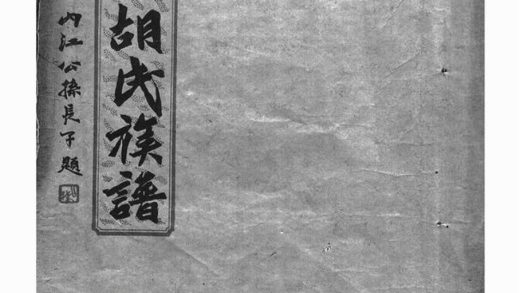 胡氏族譜
内江公孫長子題